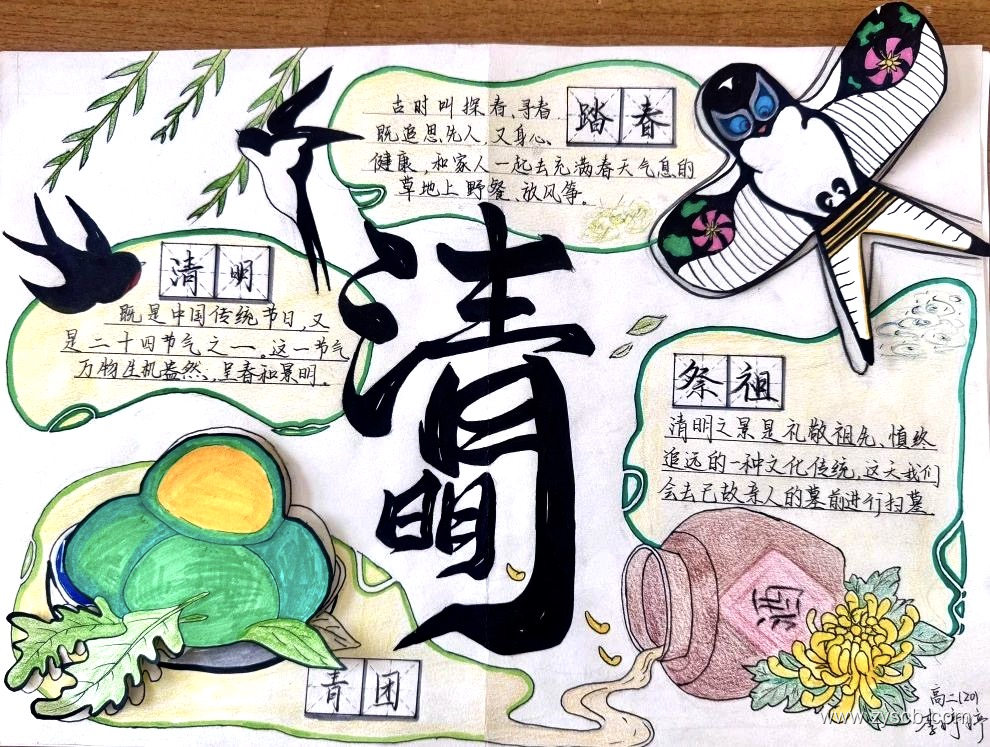 踏春
古时叫探春、寻春
既追思先人,又身心
健康,和家人一起去充满春天气息的
草地上野餐、放风筝。
清明
既是中国传统节日,又
是二十四节气之一。这一节气
万物生机盎然、呈春和景明。
清明
祭祖
清明之景是礼敬祖先、慎终
追远的一种文化传统,这天我们
会去已故亲人的墓前进行扫墓.
酒
青团
高二(20)
www.zyscb.com